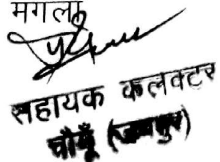 मंगला
सहायक कलक्टर
चौमूँ (जयपुर)